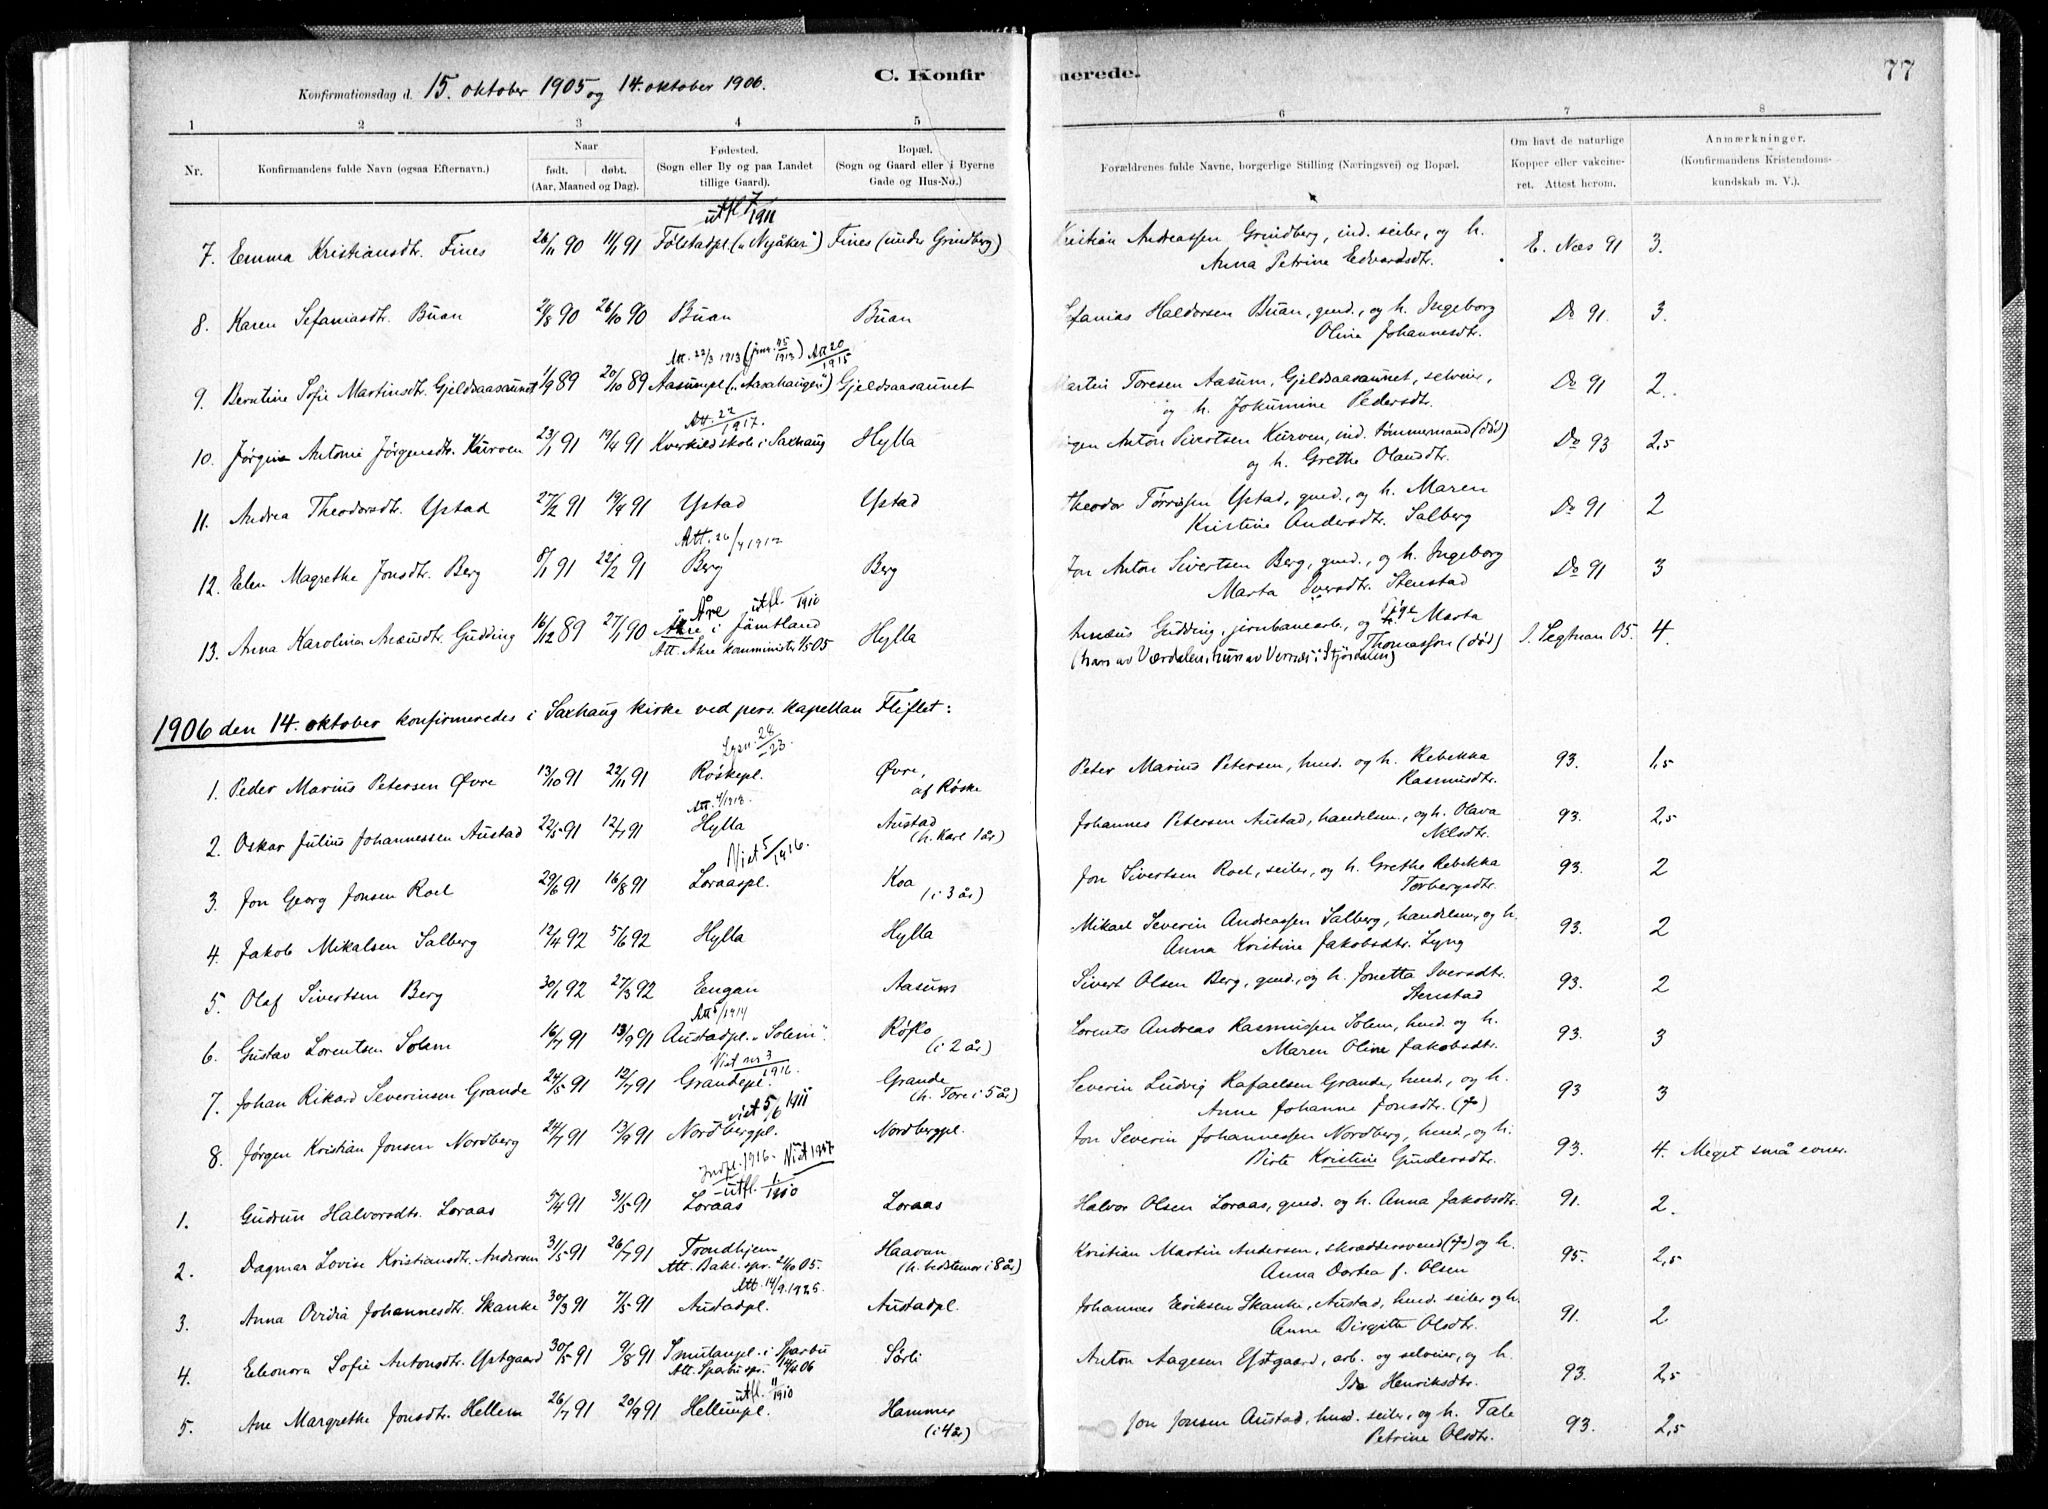 Konfirmationsdag d. 15. oktober 1905 og 14. oktober 1906.
C. Konfirmerede.
77
1 2 3 4 5 6 7 8
Nr.
Konfirmandens fulde Navn (ogsaa Efternavn.)
Naar
født. døbt.
(Aar, Maaned og Dag).
Fødested.
(Sogn eller By og paa Landet
tillige Gaard).
Bopæl.
(Sogn og Gaard eller i Byerne
Gade og Hus-No.)
Forældrenes fulde Navne, borgerlige Stilling (Næringsvei) og Bopæl.
Om havt de naturlige
Kopper eller vakcine-
ret. Attest herom.
Anmærkninger.
(Konfirmandens Kristendoms-
kundskab m. V.).
utfl 7/1911
7. Emma Kristiansdt. Fines 26/11 90 11/1 91 Tolstadpl. („Nyåker“) Fines (under Grindberg) Kristian Andreassen Grindberg, ind. seiler, og h. E. Næs 91 3.
Anna Petrine Edvardsdt.
8. Karen Sefaniasdt. Buan 2/8 90 26/10 90 Buan Buan Sefanias Haldorsen Buan, gmd., og h. Ingeborg Do 91. 3.
Oline Johannesdt.
Att. 22/3 1913 (jrnr. 45/1913) Att 20/1915
9. Berntine Sofie Martinsdt. Gjeldsaasaunet 1/9 89 20/10 89 Aasumpl („Aasahaugen“) Gjeldsaasaunet Martin Toresen Aasum, Gjeldsaasaunet, selveier, Do 91 2.
og h. Jokumine Pedersdt.
Att. 22/1917.
10. Jørgine Antonie Jørgensdt. Kurven 23/1 91 19/4 91 Kverkild skole i Saxhaug Hylla Jørgen Anton Sivertsen Kurven, ind. tømmermand (død) Do 93 2,5
og h. Grethe Olausdt.
11. Andrea Theodorsdt. Ystad 27/2 91 19/4 91 Ystad Ystad Theodor Tørrissen Ystad, gmd., og h. Maren Do 91 2
Kristine Andersdt. Salberg
Att. 26/4 1912
12. Elen Magrethe Jonsdt. Berg 8/1 91 22/2 91 Berg Berg Jon Anton Sivertsen Berg, gmd., og h. Ingeborg Do 91 3
Marta Iversdt. Stenstad
Åre utfl. 1910
13. Anna Karolina Anæusdt. Gudding 16/12 89 27/1 90 Åre i Jämtland Hylla Anæus Gudding, jernbanearb., og pige Marta S. Segtnan 05. 4.
Att. Åhre komminister 1/5 05
Thomasson (død)
(han av Værdalen, hun av Vernæs i Stjørdalen)
1906 den 14. oktober konfirmeredes i Saxhaug kirke ved pers. kapellan Fliflet:
Lysn. 28/-23.
1. Peder Marius Petersen Øvre 13/10 91 22/11 91 Røskepl. Øvre, Peter Marius Petersen, husm. og h. Rebekka 93. 1,5
af Røske Rasmusdt.
Att. 4/1913.
2. Oskar Julius Johannessen Austad 22/5 91 12/7 91 Hylla Austad Johannes Petersen Austad, handelsm., og h. Olava 93. 2,5
(h. Karl 1 år) Nilsdt.
Viet 5/1916.
3. Jon Georg Jonsen Roel 29/6 91 16/8 91 Loraaspl. Koa Jon Sivertsen Roel, seiler, og h. Grethe Rebekka 93. 2
(i 3 år) Torbergsdt.
4. Jakob Mikalsen Salberg 12/4 92 5/6 92 Hylla Hylla Mikael Severin Andreassen Salberg, handelsm., og h. 93. 2
Anna Kristine Jakobsdt. Lyng
5. Olaf Sivertsen Berg 30/1 92 27/3 92 Engan Aasum Sivert Olsen Berg, gmd., og h. Jonetta Iversdt. 93. 2
Stenstad
Att /1914
6. Gustav Lorentsen Solem 16/7 91 13/9 91 Austadpl. „Solem“. Røsko Lorents Andreas Rasmussen Solem, husm. og h. 93. 3
(i 2 år) Maren Oline Jakobsdt.
Viet nr 3/1916.
7. Johan Rikard Severinsen Grande 24/5 91 12/7 91 Grandepl. Grande Severin Ludvig Rafaelsen Grande, husm., og h. 93 3
(h. Tore i 5 år) Anne Johanne Jonsdt. (†)
viet 5/6 1911
8. Jørgen Kristian Jonsen Nordberg 24/7 91 13/9 91 Nordbergpl. Nordbergpl. Jon Severin Johannessen Nordberg, husm., og h. 93. 4. Meget små evner.
Birte Kristine Gundersdt.
Indfl. 1916. Viet 1917
utfl. 1/1910
1. Gudrun Halvorsdt. Loraas 5/4 91 31/5 91 Loraas Loraas Halvor Olsen Loraas, gmd. og h. Anna Jakobsdt. 91. 2.
2. Dagmar Lovise Kristiansdt. Andersen 31/5 91 26/7 91 Trondhjem Haavan Kristian Martin Andersen, skræddersvend (†) og h. 95. 2,5
Att. Bakl. spr. 21/10 05. (h. bedstemor i 8 år) Anna Dortea f. Olsen
Att. 14/9 1925.
3. Anna Ovidia Johannesdt. Skanke 30/3 91 7/5 91 Austadpl. Austadpl. Johannes Eriksen Skanke, Austad, husm. seiler og h. 91. 2
Anne Birgitte Olsdt.
4. Eleonora Sofie Antonsdt. Ystgaard 30/5 91 9/8 91 Smulanpl. i Sparbu Sørli Anton Aagesen Ystgaard, arb. og selveier, og h. 93. 2,5
Att. Sparbu spr. 14/4 06 Ida Henriksdt.
utfl. 11/1910
5. Ane Margrethe Jonsdt. Hellem 26/7 91 20/9 91 Hellempl. Hammer Jon Jonsen Austad, husm. seiler, og h. Tale 93. 2,5
(i 4 år) Petrine Olsdt.